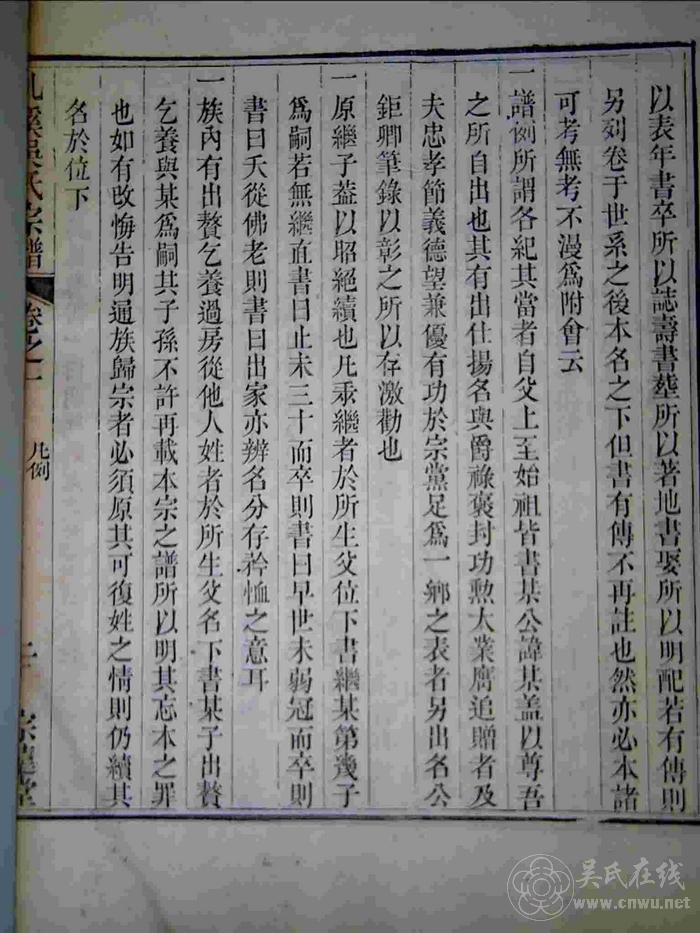 以表年書卒所以誌壽書塟所以著地書娶所以明配若有傳則
另列卷于世系之後本名之下但書有傳不再註也然亦必本諸
可考無考不漫爲附會云
一譜例所謂各紀其當者自父上至始祖皆書某公諱某盖以尊吾
之所自出也其有出仕揚名與爵祿褒封功勲大業膺追贈者及
夫忠孝節義德望兼優有功於宗黨足爲一鄉之表者另出名公
鉅卿筆錄以彰之所以存激勸也
一原繼子葢以昭絕續也凡承繼者於所生父位下書繼某第幾子
爲嗣若無繼直書曰止未三十而卒則書曰早世未弱冠而卒則
書曰夭從佛老則書曰出家亦辨名分存矜恤之意耳
一族內有出贅乞養過房從他人姓者於所生父名下書某子出贅
乞養與某爲嗣其子孫不許再載本宗之譜所以明其忘本之罪
也如有改悔告明通族歸宗者必須原其可復姓之情則仍續其
名於位下
溪吳氏宗譜
卷之一
凡例
二
吴氏在线
www.cnwu.net